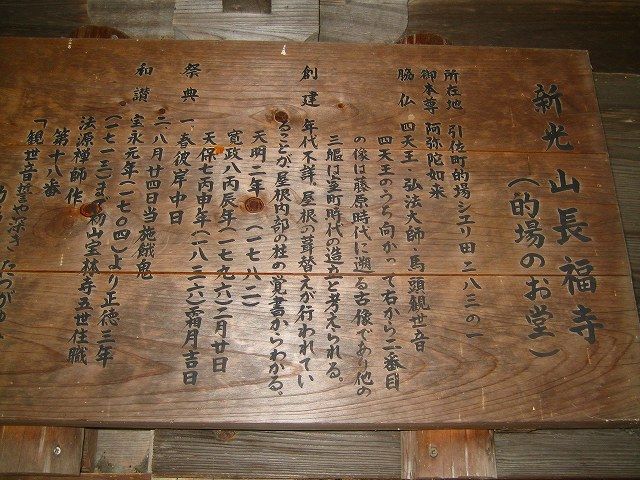 新光山長福寺
（的場のお堂）
所在地 引佐町的場シエリ田二八三の一
御本尊 阿弥陀如来
脇仏 四天王・弘法大師・馬頭観世音
四天王のうち向かって右から二番目
の像は藤原時代に遡る古像であり他の
三軀は室町時代の造立と考えられる。
創建 年代不詳。屋根の葺替えが行われてい
ることが屋根内部の柱の覚書からわかる。
天明二年（一七八二）
寛政八丙辰年（一七九六）二月廿日
天保七丙申年（一八三六）霜月吉日
祭典 一春彼岸中日
二、八月廿四日当施餓鬼
和讃 宝永元年（一七〇四）より正徳三年
（一七一三）まで初山宝林寺五世住職
法源禅師作
第十八番
「観世音誓や深き たつがゆみ